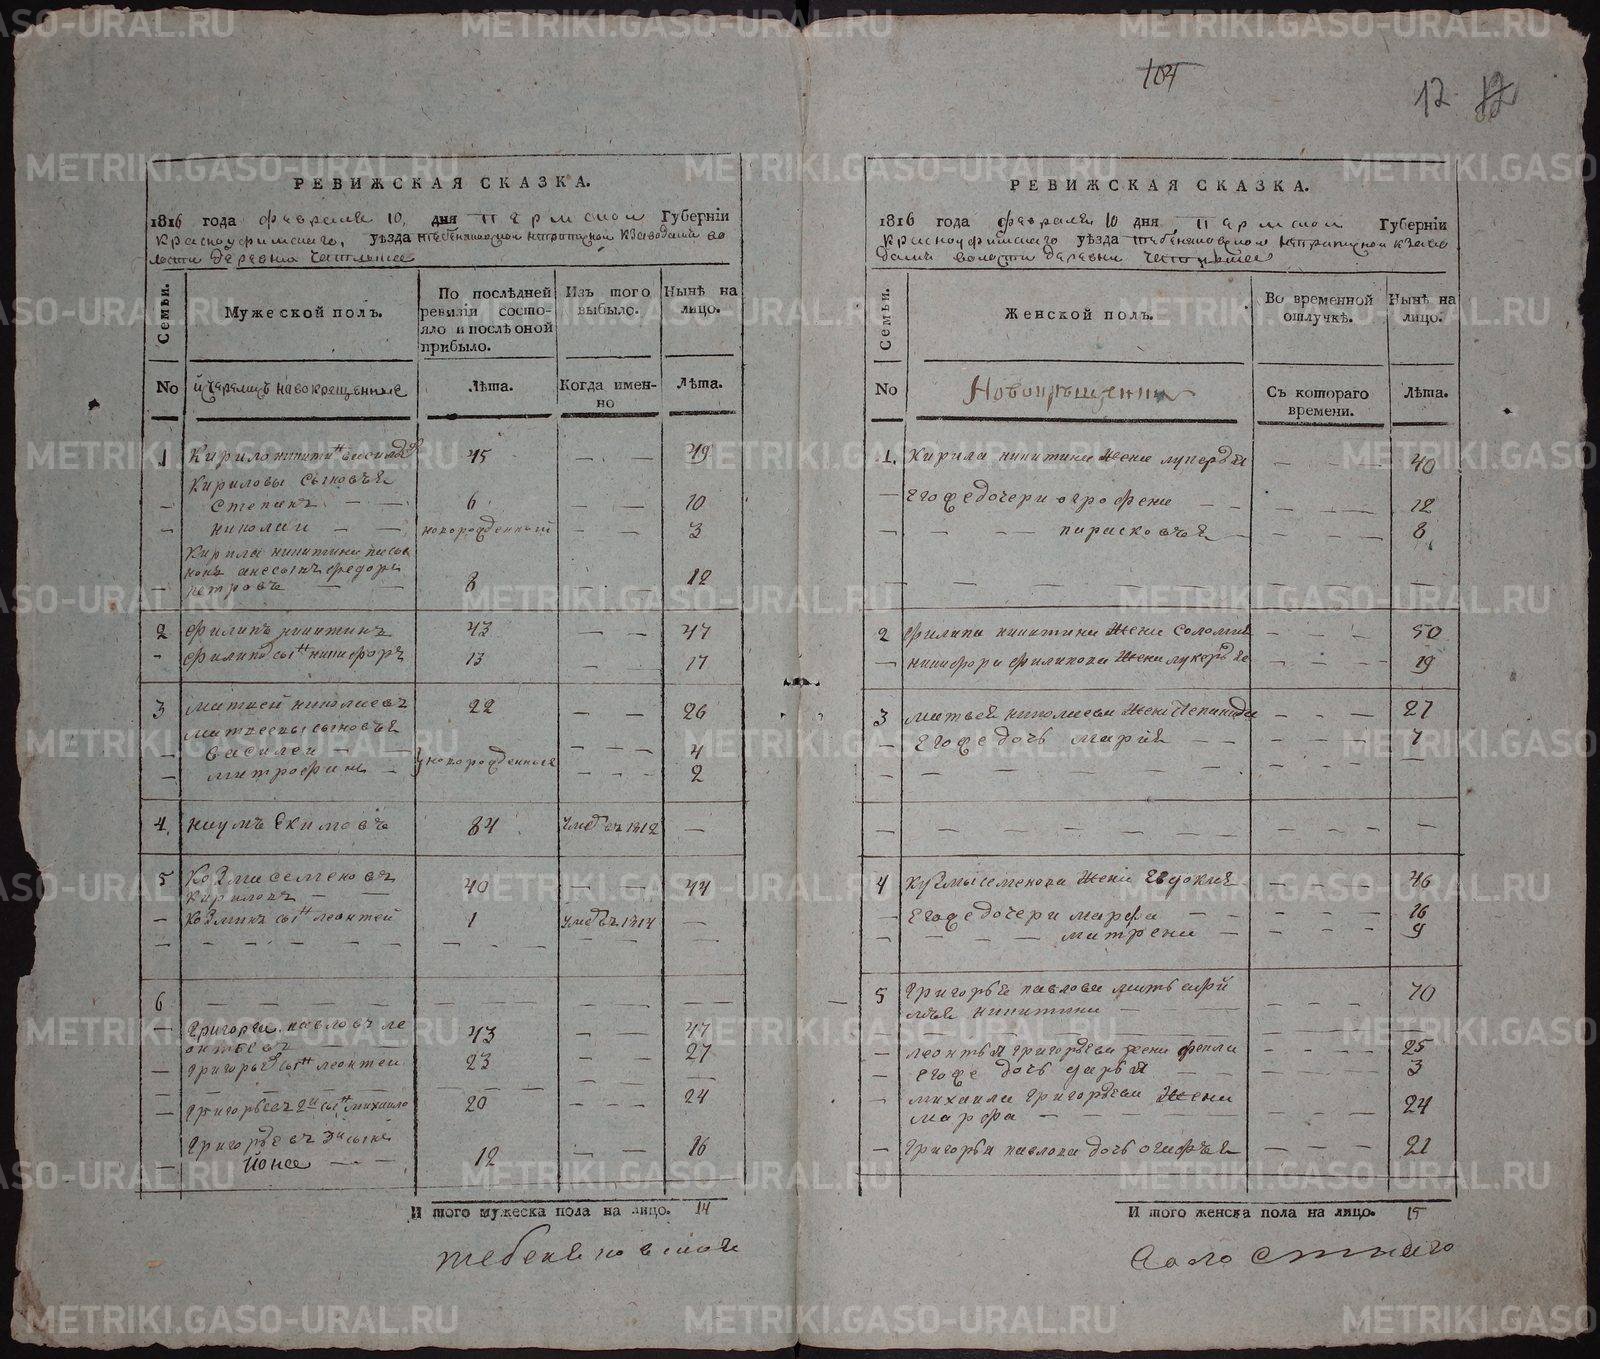 METRIKI.GASO-URAL.RU
104
12
РЕВИЖСКАЯ СКАЗКА.
1816 года февраля 10, дня Пермской Губерніи
Красноуфимскаго, уѣзда
деревни
Семьи.
Мужеской полъ.
По послѣдней ревизіи состояло и послѣ оной прибыло.
Изъ того выбыло.
Нынѣ на лицо.
No
Лѣта.
Когда именно
Лѣта.
1 45 49
Кириловы сыновья
Степанъ — — 6 — — 10
Николай — — новорожденный — — 3
Кирила никитина
Федоръ
петровъ — — 8 — — 12
2 Филипъ никитинъ 43 — — 47
Филиповъ сынъ никифоръ 13 — — 17
3 Матвей николаевъ 22 — — 26
Матвеевы сыновья
Василей — — — — — 4
Митрофанъ — новорожденныя — — — 2
4 Наумъ Екимовъ 84 умре въ 1812 —
5 Козма семеновъ
40 — — 44
Козминъ сынъ леонтей 1 умре въ 1814 —
6 — — — —
Григорей павловъ ле
онтьевъ 43 — — 47
Григорьевъ сынъ леонтей 23 — — 27
Григорьевъ 2й сынъ михаило 20 — — 24
Григорьевъ 3й сынъ
Иона — — 12 — — 16
И того мужеска пола на лицо. 14
РЕВИЖСКАЯ СКАЗКА.
1816 года февраля 10 дня, Пермской Губерніи
Красноуфимскаго уѣзда
волости деревни
Семьи.
Женской полъ.
Во временной отлучкѣ.
Нынѣ на лицо.
No
Новокрещенни
Съ котораго времени.
Лѣта.
1. Кирила никитина жена лукерья — — — 40
— Его же дочери огрофена — — — 12
— — — — парасковья — — — 8
2 Филипа никитина жена соломия — — — 50
— никифора филипова жена лукерья — — — 19
3 Матвея николаева жена — — — 27
— Его же дочь мария — — — 7
4 Кузмы семенова жена Евдокия — — — 46
— Его же дочери марфа — — — 16
— — — — матрена — — — 9
5 Григорья павлова мать
никитина — — — 70
— леонтья григорьева жена фекла — — — 25
— Его же дочь дарья — — — 3
— михаила григорьева жена
марфа — — — 24
— Григорья павлова дочь — — — 21
И того женска пола на лицо. 15